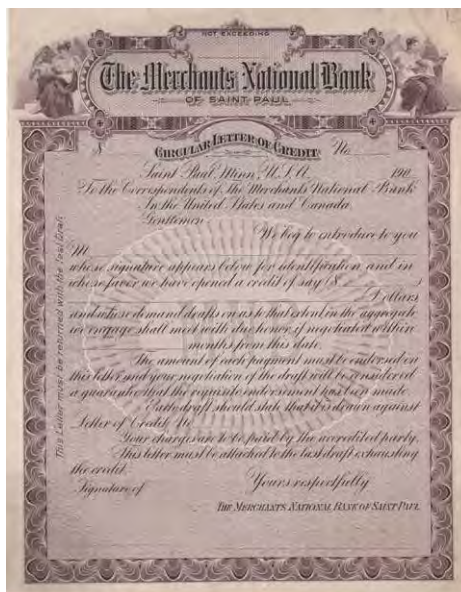 NOT EXCEEDING
The Merchants National Bank
OF SAINT PAUL
CIRCULAR LETTER OF CREDIT
$ No.
Saint Paul, Minn., U.S.A. 190
To the Correspondents of The Merchants National Bank
In the United States and Canada
Gentlemen:
We beg to introduce to you
M
whose signature appears below for identification and in
whose favor we have opened a credit of say ($ )
Dollars
and whose demand drafts on us to that extent in the aggregate
we engage shall meet with due honor if negotiated within
months from this date.
The amount of each payment must be endorsed on
this letter and your negotiation of the draft will be considered
a guarantee that the requisite endorsement has been made.
Each draft should state that it is drawn against
Letter of Credit No.
Your charges are to be paid by the accredited party.
This letter must be attached to the last draft exhausting
the credit.
Signature of Yours respectfully
THE MERCHANTS NATIONAL BANK OF SAINT PAUL
This Letter must be returned with the last Draft